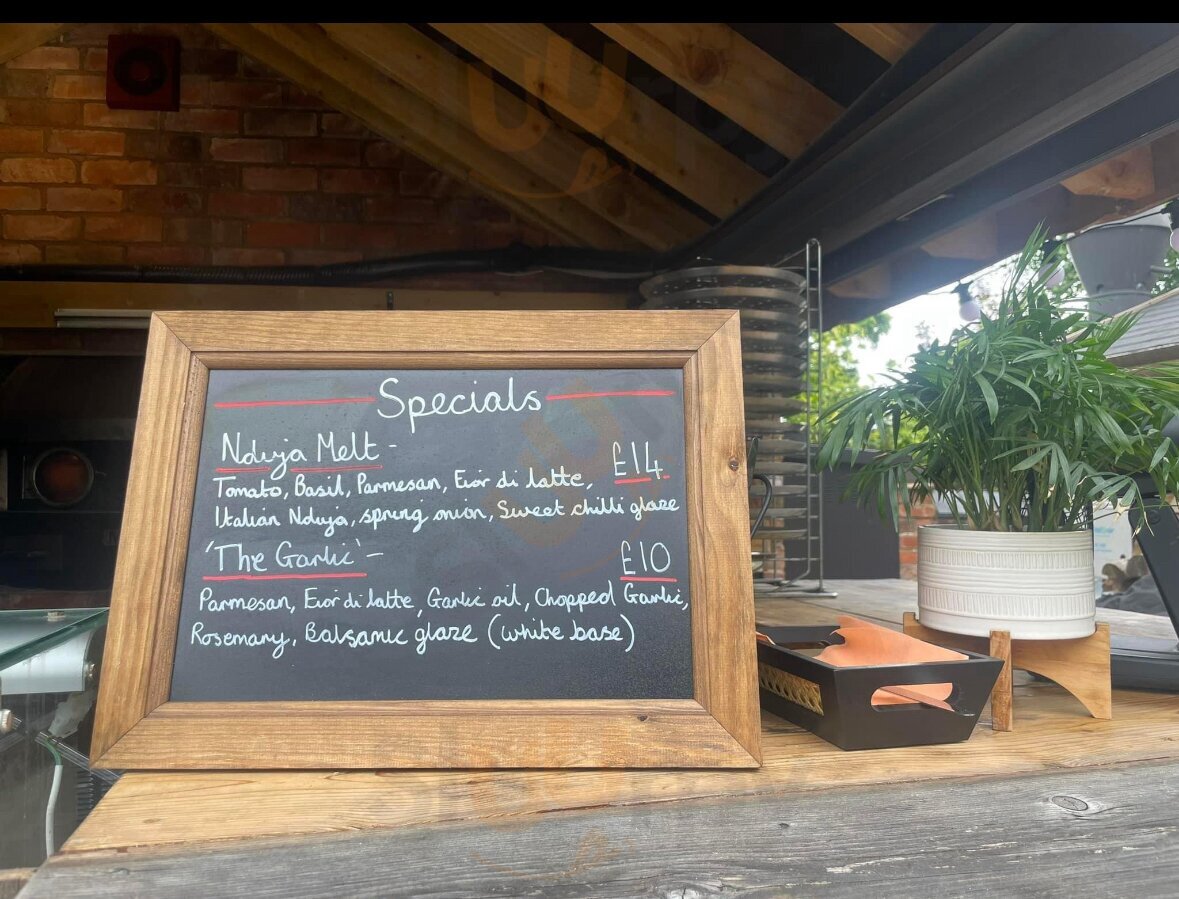 Specials
Nduja Melt - £14
Tomato, Basil, Parmesan, Fior di latte,
Italian Nduja, spring onion, Sweet chilli glaze
'The Garlic' - £10
Parmesan, Fior di latte, Garlic oil, Chopped Garlic,
Rosemary, Balsamic glaze (white base)